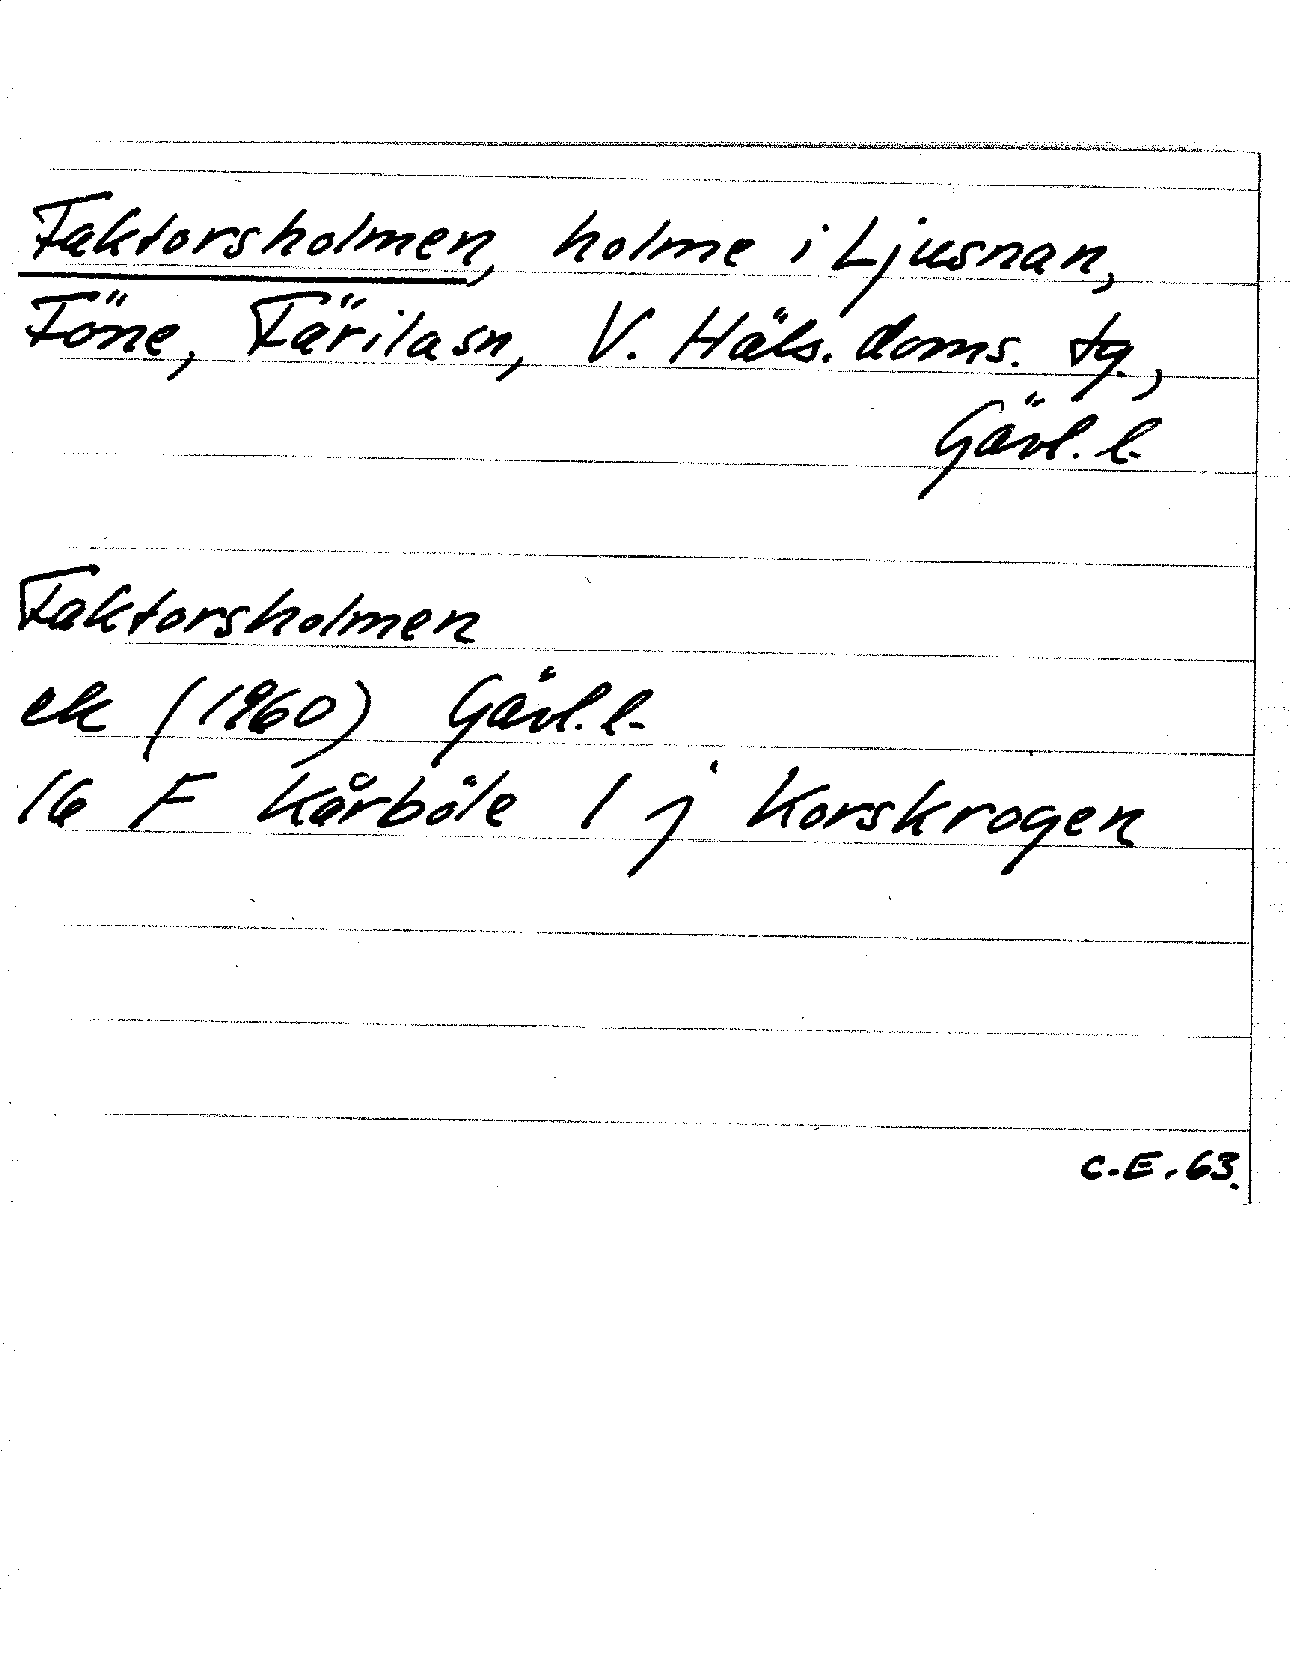 Faktorsholmen, holme i Ljusnan,
Föne, Färila sn, V. Häls. doms. tg.,
Gävl. l.
Faktorsholmen
ek (1960) Gävl. l.
16 F Kårböle 1 j Korskrogen
C.E. 63.